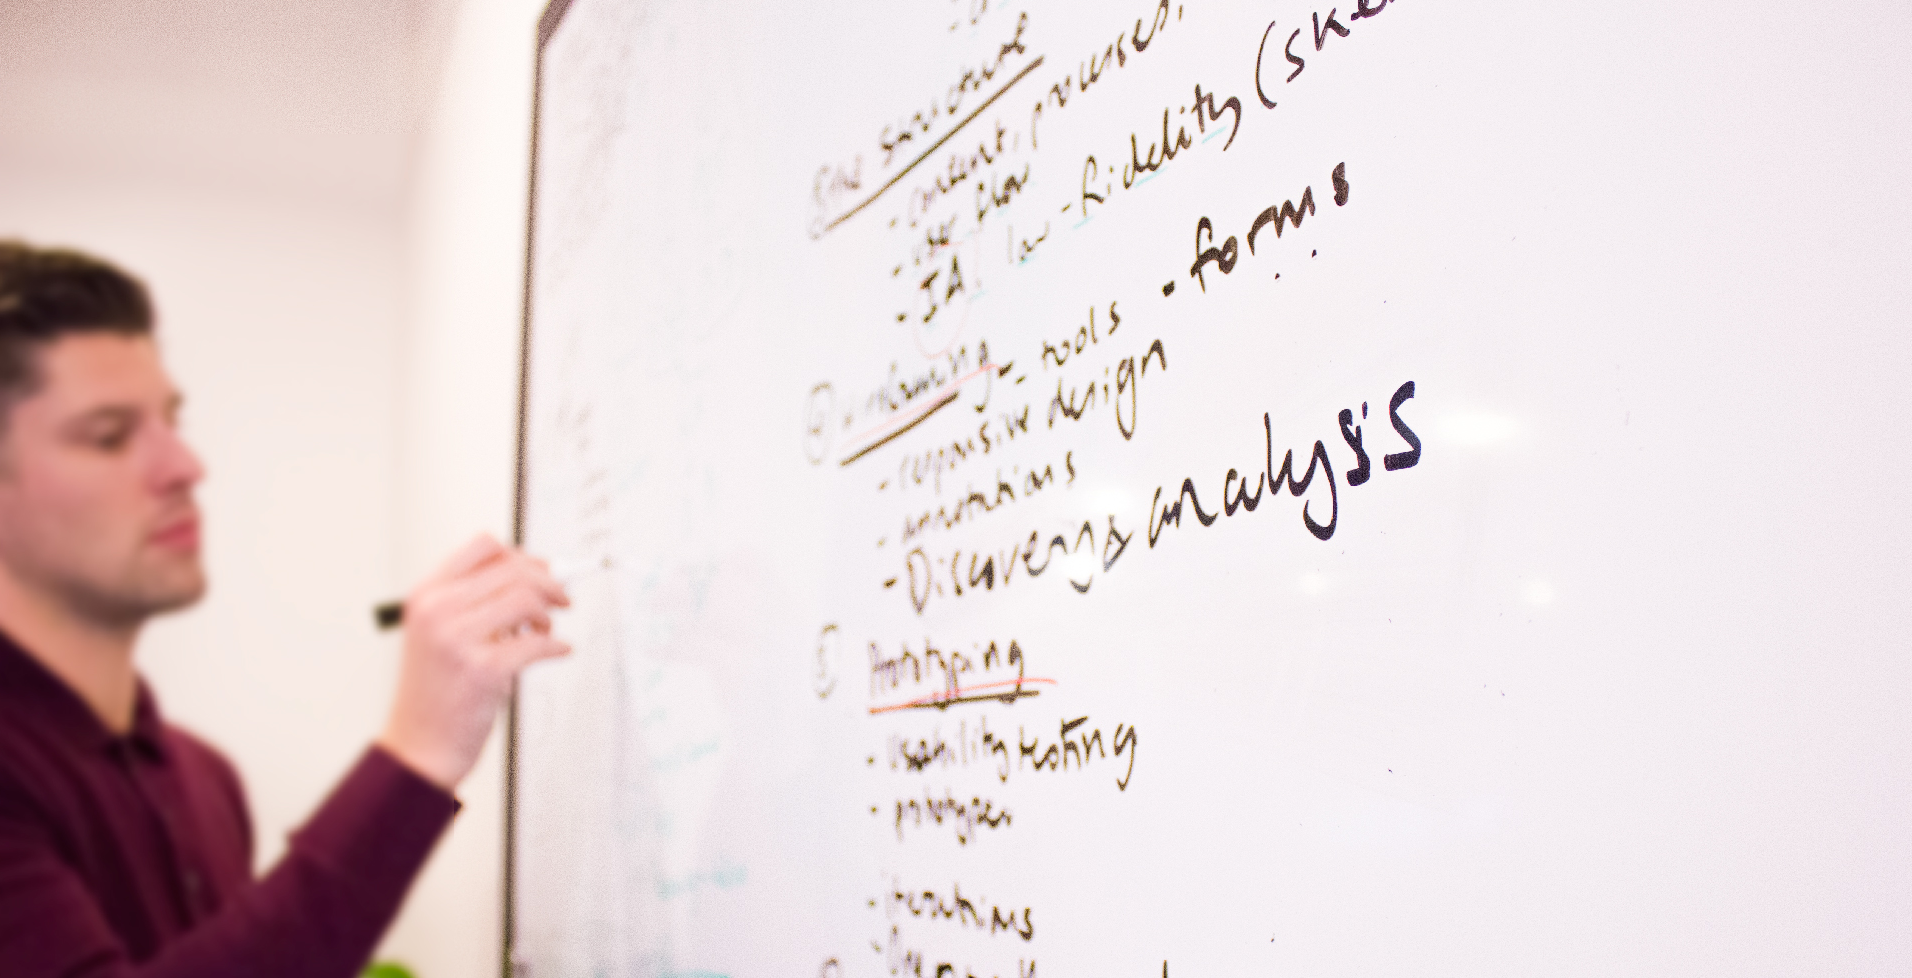 structure
- content, processes,
- user flow
- IA low-fidelity (ske
wireframing - tools - forms
- responsive design
- annotations
- Discovery & analysis
5 Prototyping
- usability testing
- prototypes
- iterations